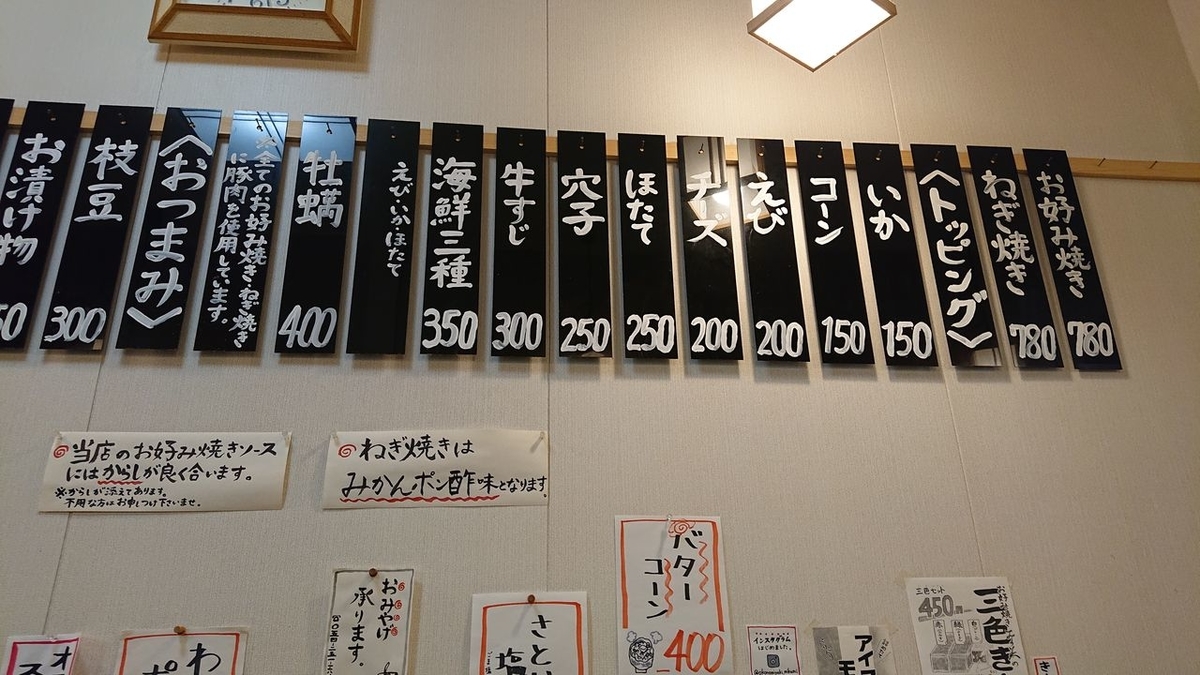 お好み焼き
780
ねぎ焼き
780
〈トッピング〉
いか
150
コーン
150
えび
200
チーズ
200
ほたて
250
穴子
250
牛すじ
300
海鮮三種
350
えび・いか・ほたて
牡蠣
400
※全てのお好み焼き・ねぎ焼き
に豚肉を使用しています。
〈おつまみ〉
枝豆
300
お漬け物
50
当店のお好み焼きソース
にはからしが良く合います。
※からしが添えてあります。
不用な方はお申しつけ下さいませ。
ねぎ焼きは
みかんポン酢味となります
バター
コーン
400
おみやげ
承ります。
さとい
塩
わ
ポ
オ
ス
インスタグラム
はじめました。
アイス
モ
三色セット
450円
お好み焼き
三色ぎ